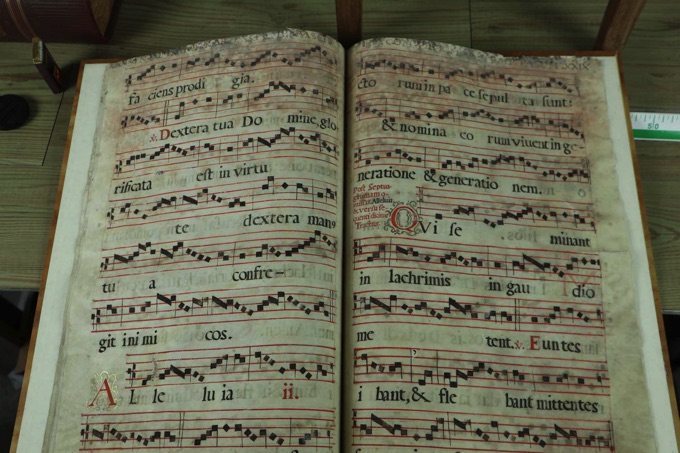 fa ciens prodi gia.
℣. Dextera tua Do mine, glo
rificata est in virtu
te dextera man
tu a confre-
git inimi cos.
Al le lu ia ii.
cto rum in pa ce sepul ta sunt:
& nomina eo rum vivent in ge-
neratione & generatio nem. o
Post Septua-
& versu se
QVi se minant
in lachrimis in gau dio
me tent. ℣. Euntes
i bant, & fle bant mittentes